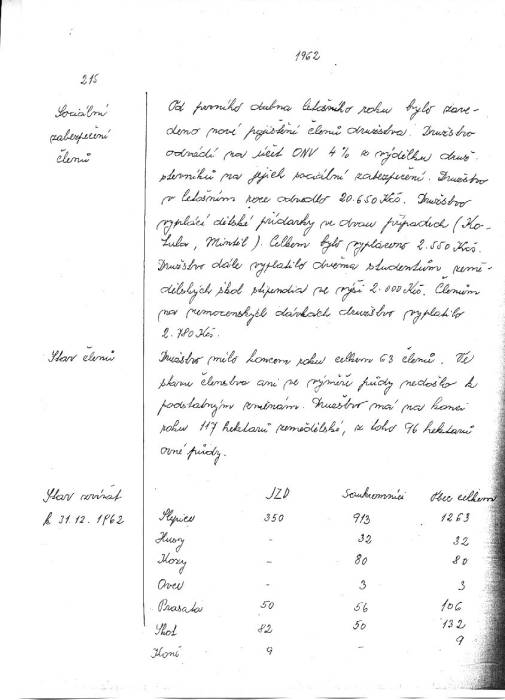 1962
215
Sociální
zabezpečení
členů
Od prvního dubna letošního roku bylo zave-
deno nové pojištění členů družstva. Družstvo
odvádí na účet ONV 4% z výdělku druž-
stevníků na jejich sociální zabezpečení. Družstvo
v letošním roce odvedlo 20.650 Kčs. Družstvo
vyplácí dětské přídavky ve dvou případech (Ko-
tula, Mintěl). Celkem bylo vyplaceno 2.550 Kčs.
Družstvo dále vyplatilo dvěma studentům země-
dělských škol stipendia ve výši 2.000 Kčs. Členům
na nemocenských dávkách družstvo vyplatilo
2.780 Kčs.
Stav členů
Družstvo mělo koncem roku celkem 63 členů. Ve
stavu členstva ani ve výměře půdy nedošlo k
podstatným změnám. Družstvo má na konci
roku 117 hektarů zemědělské, z toho 96 hektarů
orné půdy.
Stav zvířat
k 31.12.1962
JZD Soukromníci Obec celkem
Slepice 350 913 1263
Husy - 32 32
Kozy - 80 80
Ovce - 3 3
Prasata 50 56 106
Skot 82 50 132
Koně 9 - 9